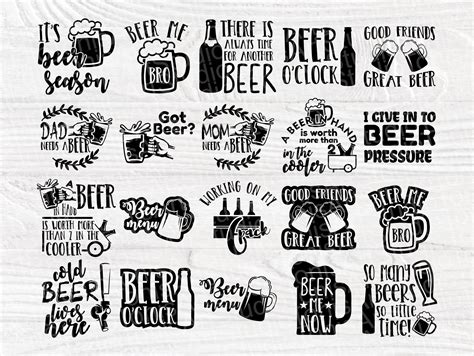 IT'S
beer
season
BEER ME
BRO
THERE IS
ALWAYS TIME
FOR ANOTHER
BEER
BEER
O'CLOCK
GOOD FRIENDS
GREAT BEER
DAD
NEEDS A BEER
Got
Beer?
MOM
NEEDS A BEER
A BEER IN HAND
is worth
more than
in the
cooler
I GIVE IN TO
BEER
PRESSURE
A BEER
IN HAND
IS WORTH MORE
THAN 2 IN THE
COOLER
Beer
menu
WORKING ON MY
6 pack
GOOD FRIENDS
GREAT BEER
BEER ME
BRO
cold
BEER
lives
here
BEER
O'CLOCK
Beer
menu
BEER
ME
NOW
SO MANY
BEERS
SO LITTLE
TIME!